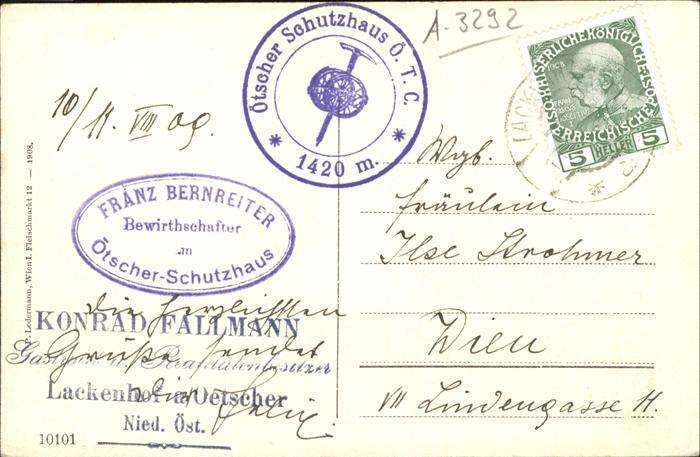 A. 3292
Ötscher Schutzhaus Ö. T. C.
* 1420 m. *
KAISERLICHE KÖNIGLICHE ÖSTERREICHISCHE POST
5 HELLER 5
LACKEN
10/11. VIII 09.
FRANZ BERNREITER
Bewirthschafter
am
Ötscher-Schutzhaus
die herzlichsten
KONRAD FALLMANN
Grüße sendet
Lackenhof a/Oetscher
Nied. Öst.
10101
Ledermann, Wien I. Fleischmarkt 12 — 1908.
Wgb.
Fräulein
Ilse Strohmer
Wien
VII Lindengasse 11.